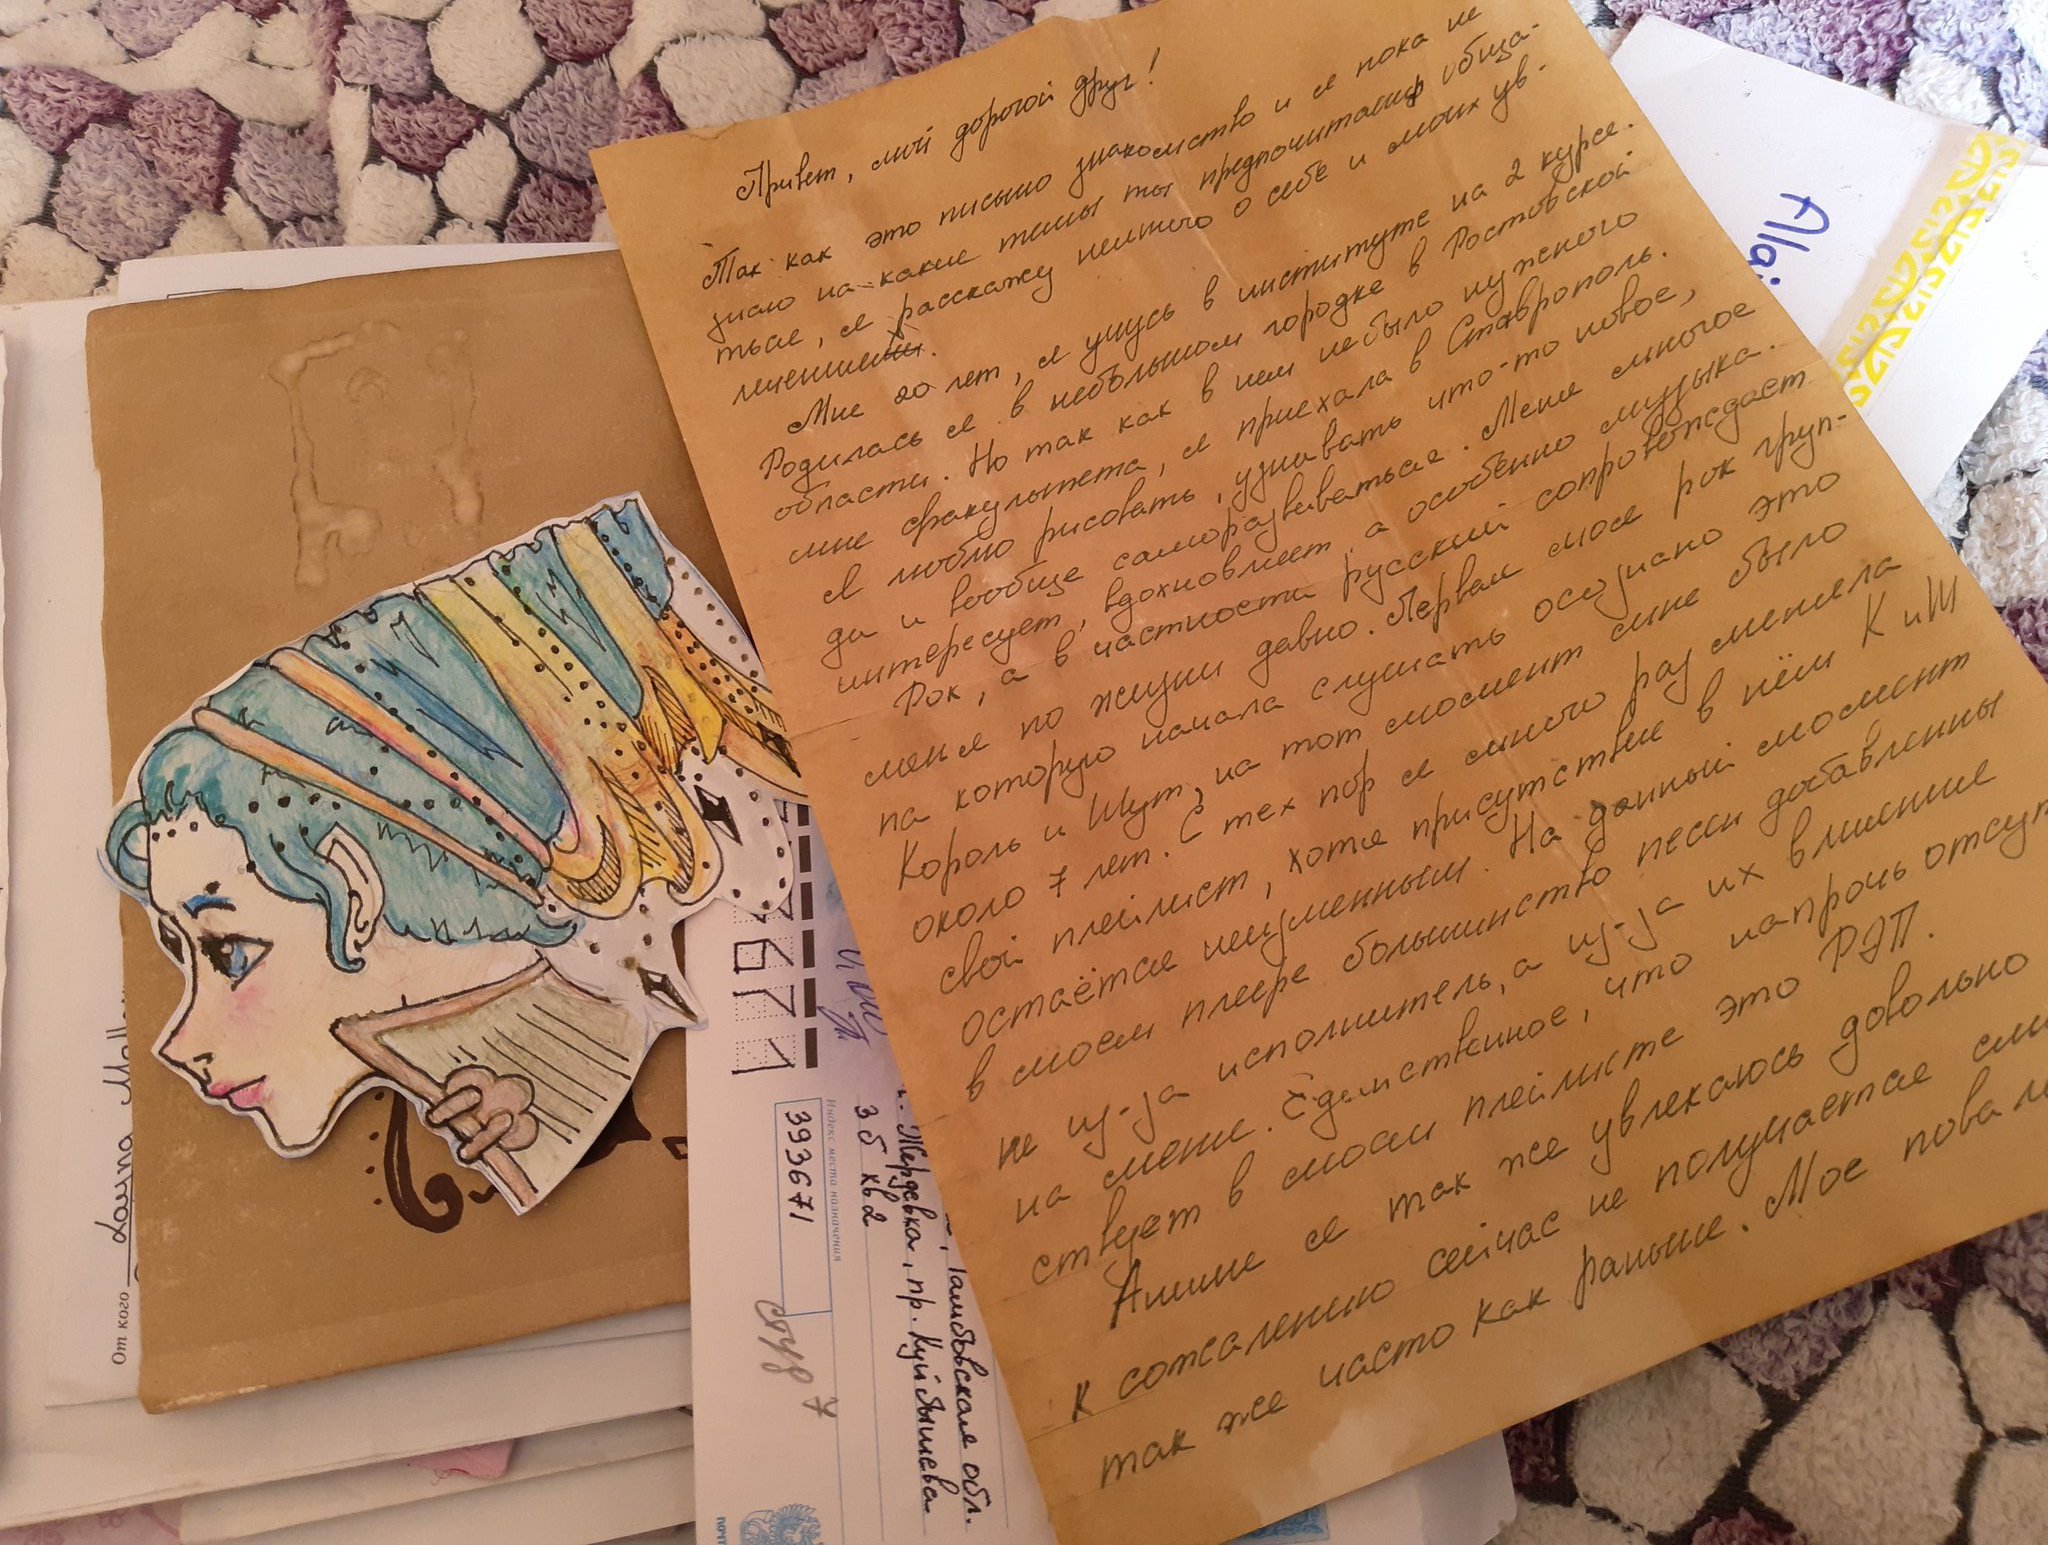 Привет, мой дорогой друг!
Так как это письмо знакомство и я пока не
знаю на какие темы ты предпочитаешь обща-
ться, я расскажу немного о себе и моих ув-
лечениях.
Мне 20 лет, я учусь в институте на 2 курсе.
Родилась я в небольшом городке в Ростовской
области. Но так как в нем небыло нужного
мне факультета, я приехала в Ставрополь.
Я люблю рисовать, узнавать что-то новое,
да и вообще саморазвиваться. Меня многое
интересует, вдохновляет, а особенно музыка.
Рок, а в частности русский сопровождает
меня по жизни давно. Первая моя рок груп-
па которую начала слушать осознано это
Король и Шут, на тот момент мне было
около 7 лет. С тех пор я много раз меняла
свой плейлист, хотя присутствие в нём КиШ
остаётся неизменным. На данный момент
в моем плеере большинство песен добавленны
не из-за исполнитель, а из-за их влияние
на меня. Единственное, что напрочь отсут
ствует в моем плейлисте это РЭП.
Аниме я так же увлекаюсь довольно
к сожалению сейчас не получается
так же часто как раньше. Мое
Alai
От кого Laura
Тамбовская обл.
г. Жердевка, пр. Куйбышева
3б кв2
Индекс места назначения
393671